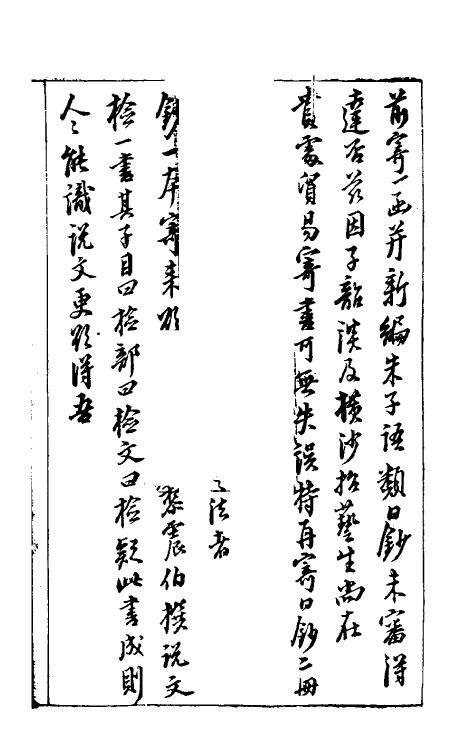 前寄一函并新編朱子語類日鈔未審得
達否茲因子韶談及橫沙招藝生尚在
貴處貿易寄書可無失誤特再寄日鈔二冊
之法者
鈔一本寄來以 黎震伯撰說文
檢一書其子目曰檢部曰檢文曰檢疑此書成則
人人能識說文更以得吾